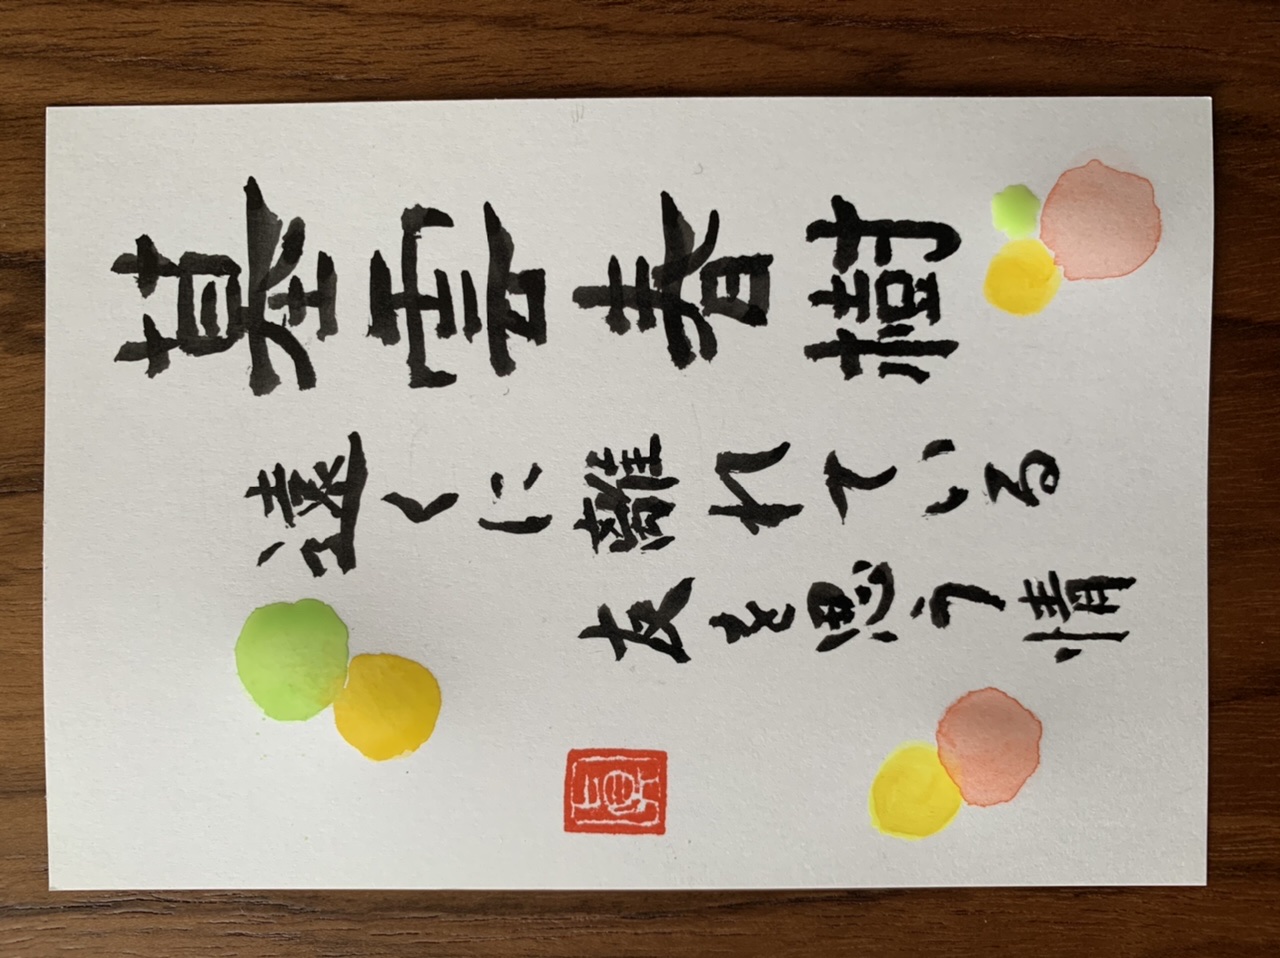 墓雲春樹
遠くに離れている
友を思う情